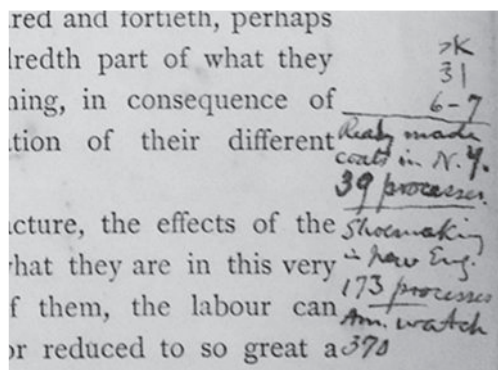 red and fortieth, perhaps
dredth part of what they
ning, in consequence of
ation of their different
acture, the effects of the
what they are in this very
f them, the labour can
or reduced to so great a
>K
31
6-7
Ready made
coats in N.Y.
39 processes.
Shoemaking
in New Eng.
173 processes
Am. watch
370